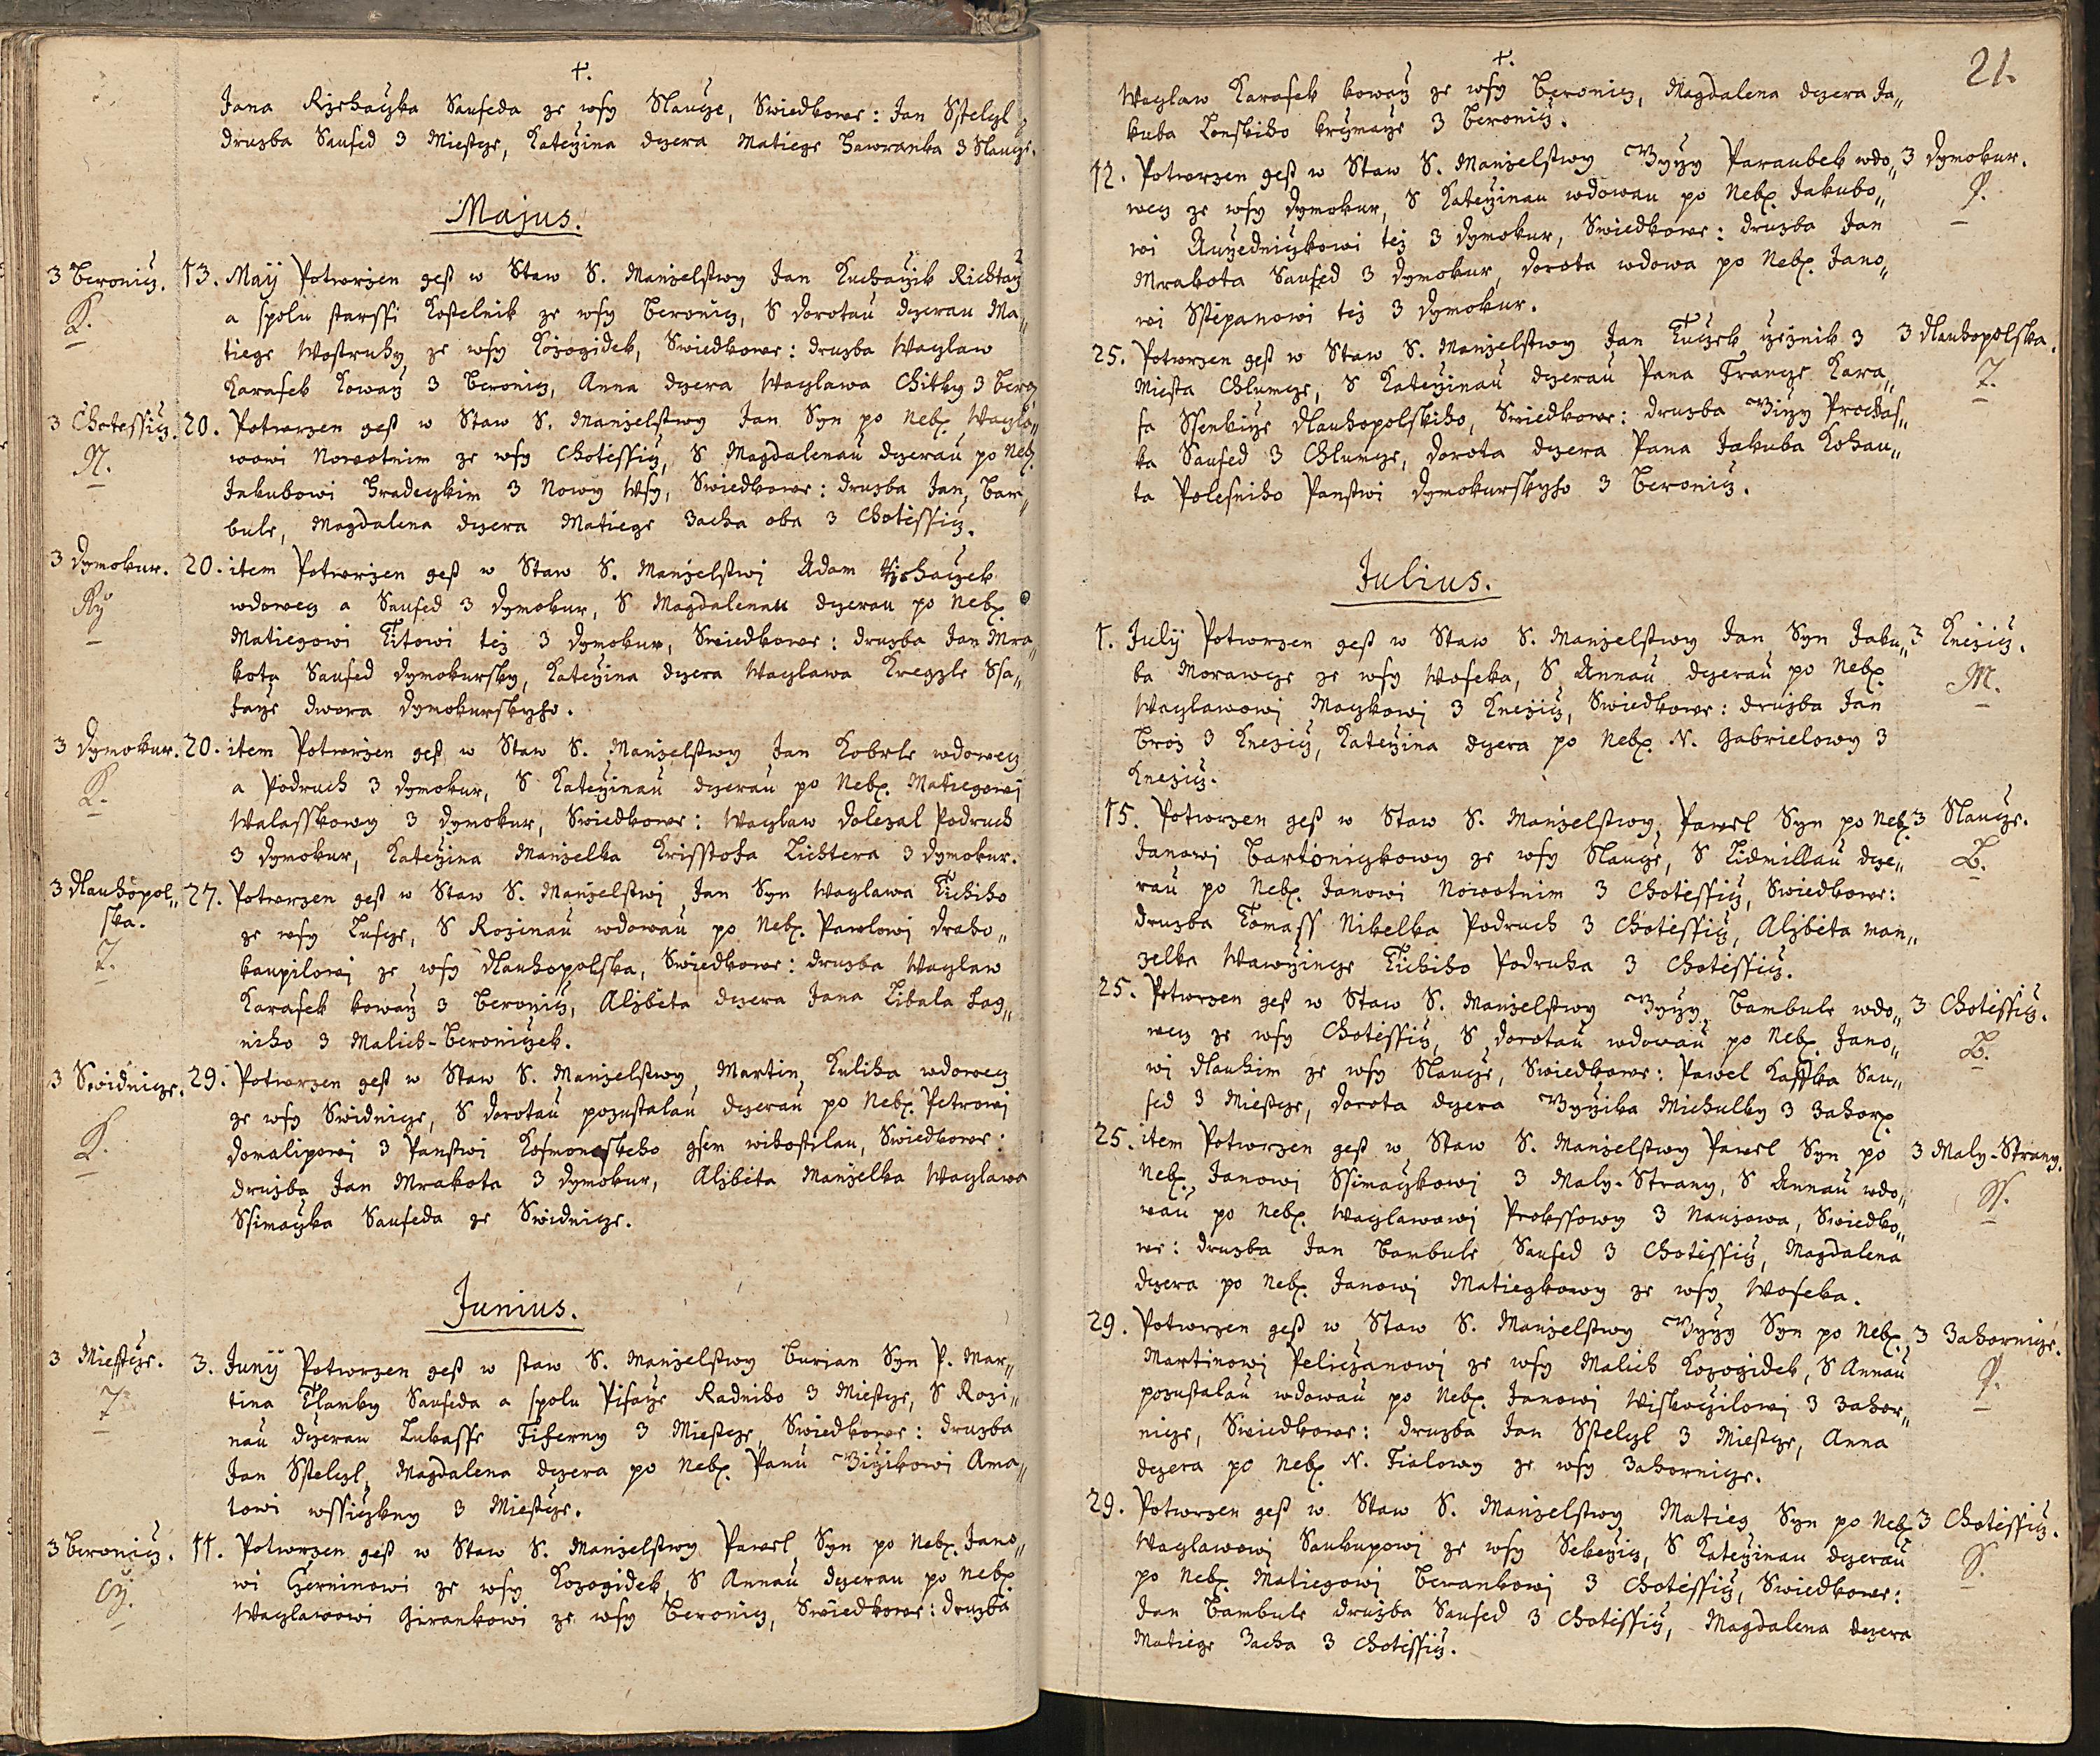 †.
Jana Rzehaczka Sauseda ze wsy Slaucze, Swiedkowe: Jan Sstelczl
druzba Saused z Miestcze, Kateržina dczera Matiege Hawranka z Slaucze.
Majus.
z Beronicz. 13. Maÿ Potwrzen gest w Staw S. Manzelstwy Jan Kucharžik Richtarž
K. a spolu starssi Kostelnik ze wsy Beronicz, S Dorotau dczerau Ma„
tiege Wostruhy ze wsy Kozogidek, Swiedkowe: druzba Waczlaw
Karasek Kowarz z Beronicz, Anna dczera Waczlawa Chitky z Beroz
z Chotessicz. 20. Potwrzen gest w Staw S. Manzelstwy Jan Syn po Nebx. Waczla„
N. wowi Nowotnim ze wsy Chotissicz, S Magdalenau dczerau po Nebx.
Jakubowi Hradeczkim z Nowy Wsy, Swiedkowe: druzba Jan Bam„
bule, Magdalena dczera Matiege Zacha oba z Chotissicz.
z Dymokur. 20. item Potwrzen gest w Staw S. Manzelstwj Adam Rzehaczek
Rz wdowecz a Saused z Dymokur, S Magdalenau dczerau po Nebx.
Matiegowi Titowi tez z Dymokur, Swiedkowe: druzba Jan Mra„
kota Saused Dymokursky, Kateržina dczera Waczlawa Kregzle Ssa„
farže dwora Dymokurskyho.
z Dymokur. 20. item Potwrzen gest w Staw S. Manzelstwy Jan Kobrle wdowecz
K. a Podruch z Dymokur, S Kateržinau dczerau po Nebx. Matiegowi
Walasskowy z Dymokur, Swiedkowe: Waczlaw Dolezal Podruch
z Dymokur, Kateržina Manzelka Krisstofa Lichtera z Dymokur.
z Dlauhopol„ 27. Potwrzen gest w Staw S. Manzelstwj Jan Syn Waczlawa Tichiho
ska. ze wsy Lusczе, S Rozinau wdowau po Nebx. Pawlowj Draho„
T. kaupilowj ze wsy Dlauhopolska, Swiedkowe: druzba Waczlaw
Karasek kowarz z Beronicz, Alzbeta dczera Jana Libala Hag„
niho z Malich-Beroniczek.
z Swidnicze. 29. Potwrzen gest w Staw S. Manzelstwy Martin Kuliha wdowecz
ze wsy Swidnicze, S Dorotau pozustalau dczerau po Nebx. Petrowj
K. Domalipowj z Panstwi Kosmonoskeho gsem wihostilau, Swiedkowe:
druzba Jan Mrakota z Dymokur, Alzbeta Manzelka Waczlawa
Ssimaczka Sauseda ze Swidnicze.
Junius.
z Miestcze. 3. Junÿ Potwrzen gest w staw S. Manzelstwy Burian Syn P. Mar„
T. tina Tlamky Sauseda a spolu Pisarže Radniho z Miestcze, S Rozi„
nau dczerau Lukasse Fiferny z Miestcze, Swiedkowe: druzba
Jan Sstelczl, Magdalena dczera po Nebx. Panu Giržikowi Ama„
towi wssiczkny z Miestcze.
z Beronicz. 11. Potwrzen gest w Staw S. Manzelstwy Pawel Syn po Nebx. Jano„
Cž. wi Czerninowi ze wsy Kozogidek, S Annau dczerau po Nebx
Waczlawowi Girankowi ze wsy Beronicz, Swiedkowe: druzba
†. 21.
Waczlaw Karasek kowarz ze wsy Beronicz, Magdalena dczera Ja„
kuba Konskiho krcžmarže z Beronicz.
12. Potwrzen gest w Staw S. Manzelstwy Giržy Paraubek wdo„ z Dymokur.
wecz ze wsy Dymokur, S Kateržinau wdowau po Nebx. Jakubo„ P.
wi Auržedniczkowi tez z Dymokur, Swiedkowe: druzba Jan
Mrakota Saused z Dymokur, Dorota wdowa po Nebx. Jano„
wi Sstepanowi tez z Dymokur.
25. Potwrzen gest w Staw S. Manzelstwy Jan Tuczek ržeznik z z Dlauhopolska.
Miesta Chlumcze, S Kateržinau dczerau Pana Francze Kara„ T.
sa Ssenkirže Dlauhopolskiho, Swiedkowe: druzba Giržy Prochas„
ka Saused z Chlumcze, Dorota dczera Pana Jakuba Kohau„
ta Polesniho Panstwi Dymokurskyho z Beronicz.
Julius.
1. Julÿ Potwrzen gest w Staw S. Manzelstwy Jan Syn Jaku„ z Knezicz.
ba Morawcze ze wsy Woseka, S Annau dczerau po Nebx. M.
Waczlawowj Maczkowj z Knezicz, Swiedkowe: druzba Jan
Broz z Knezicz, Kateržina dczera po Nebx. N. Gabrielowy z
Knezicz.
15. Potwrzen gest w Staw S. Manzelstwy, Pawel Syn po Nebx. z Slaucze.
Janowj Bartoniczkowy ze wsy Slaucze, S Lidmillau dcze„ B.
rau po Nebx. Janowi Nowotnim z Chotissicz, Swiedkowe:
druzba Tomass Nikelka Podruch z Chotissicz, Alzbeta man„
zelka Wawržincze Tichiho Podruha z Chotissicz.
25. Potwrzen gest w Staw S. Manzelstwy Giržy Bambule wdo„ z Chotissicz.
wecz ze wsy Chotissicz, S Dorotau wdowau po Nebx. Jano„ B.
wi Dlauhim ze wsy Slaucze, Swiedkowe: Pawel Kasska Sau„
sed z Miestcze, Dorota dczera Giržika Michulky z Zahorx.
25. item Potwrzen gest w Staw S. Manzelstwy Pawel Syn po z Maly-Strany.
Nebx. Janowj Ssimaczkowj z Maly-Strany, S Annau wdo„ Ss.
wau po Nebx. Waczlawowj Prokssowy z Nauzowa, Swiedko„
we: druzba Jan Bambule Saused z Chotissicz, Magdalena
dczera po Nebx. Janowj Matiegkowy ze wsy Woseka.
29. Potwrzen gest w Staw S. Manzelstwy Giržy Syn po Nebx. z Zahornicze.
Martinowj Peliczanowj ze wsy Malich Kozogidek, S Annau P.
pozustalau wdowau po Nebx. Janowj Wiskoczilowj z Zahor„
nicze, Swiedkowe: druzba Jan Sstelczl z Miestcze, Anna
dczera po Nebx N. Fialowy ze wsy Zahornicze.
29. Potwrzen gest w Staw S. Manzelstwy Matieg Syn po Nebx z Chotissicz.
Waczlawowj Saukupowj ze wsy Sekeržicz, S Kateržinau dczerau S.
po Nebx. Matiegowj Berankowj z Chotissicz, Swiedkowe:
Jan Bambule druzba Saused z Chotissicz, Magdalena dczera
Matiege Zacha z Chotissicz.